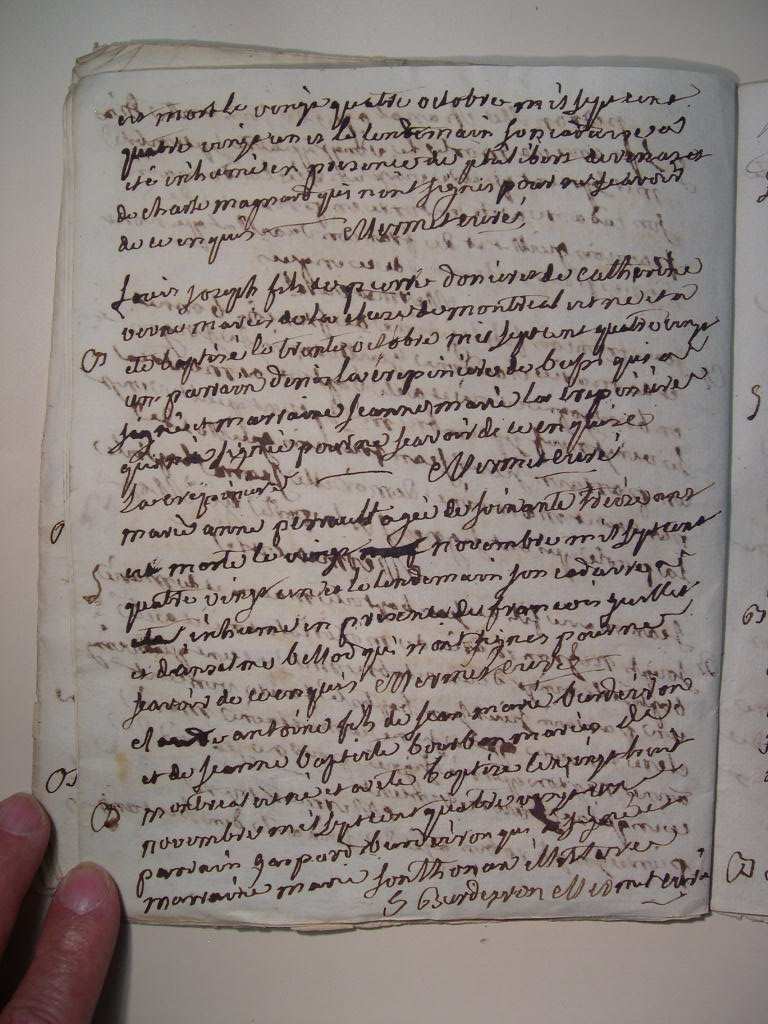 est mort le vingt quatre octobre mil sept cent
quatre vingt un et le lendemain son cadavre a
été inhumé en presence de
de charle magnard qui n'ont signes pour ne sçavoir
de ce enquis Mermet curé
Louis joseph fils de pierre donier et de Catherine
mariés de la cluse de montreal est né et a
eté baptisé le trente octobre mil sept cent quatre vingt
un parrain denis la crepiniere de bussi qui a
signé et marraine jeanne marie la crepiniere
qui n'a signée pour ne sçavoir de ce enquise
Lacrepiniere Mermet curé
marie anne perrault agée de soixante treize ans
est morte le vingt novembre mil sept cent
quatre vingt un et le lendemain son cadavre a
inhume en presence de francois guillet
et d'anselme bellod qui n'ont signes pour ne
sçavoir de ce enquis Mermet curé
antoine fils de jean marie burdeiron
et de jeanne baptiste bourbon mariés de
montreal est né et a eté baptise le vingt huit
novembre mil sept cent quatre vingt un
parrain gaspard burdeiron qui a signé et
marraine marie sonthonax illitterée
G Burdeyron Mermet curé